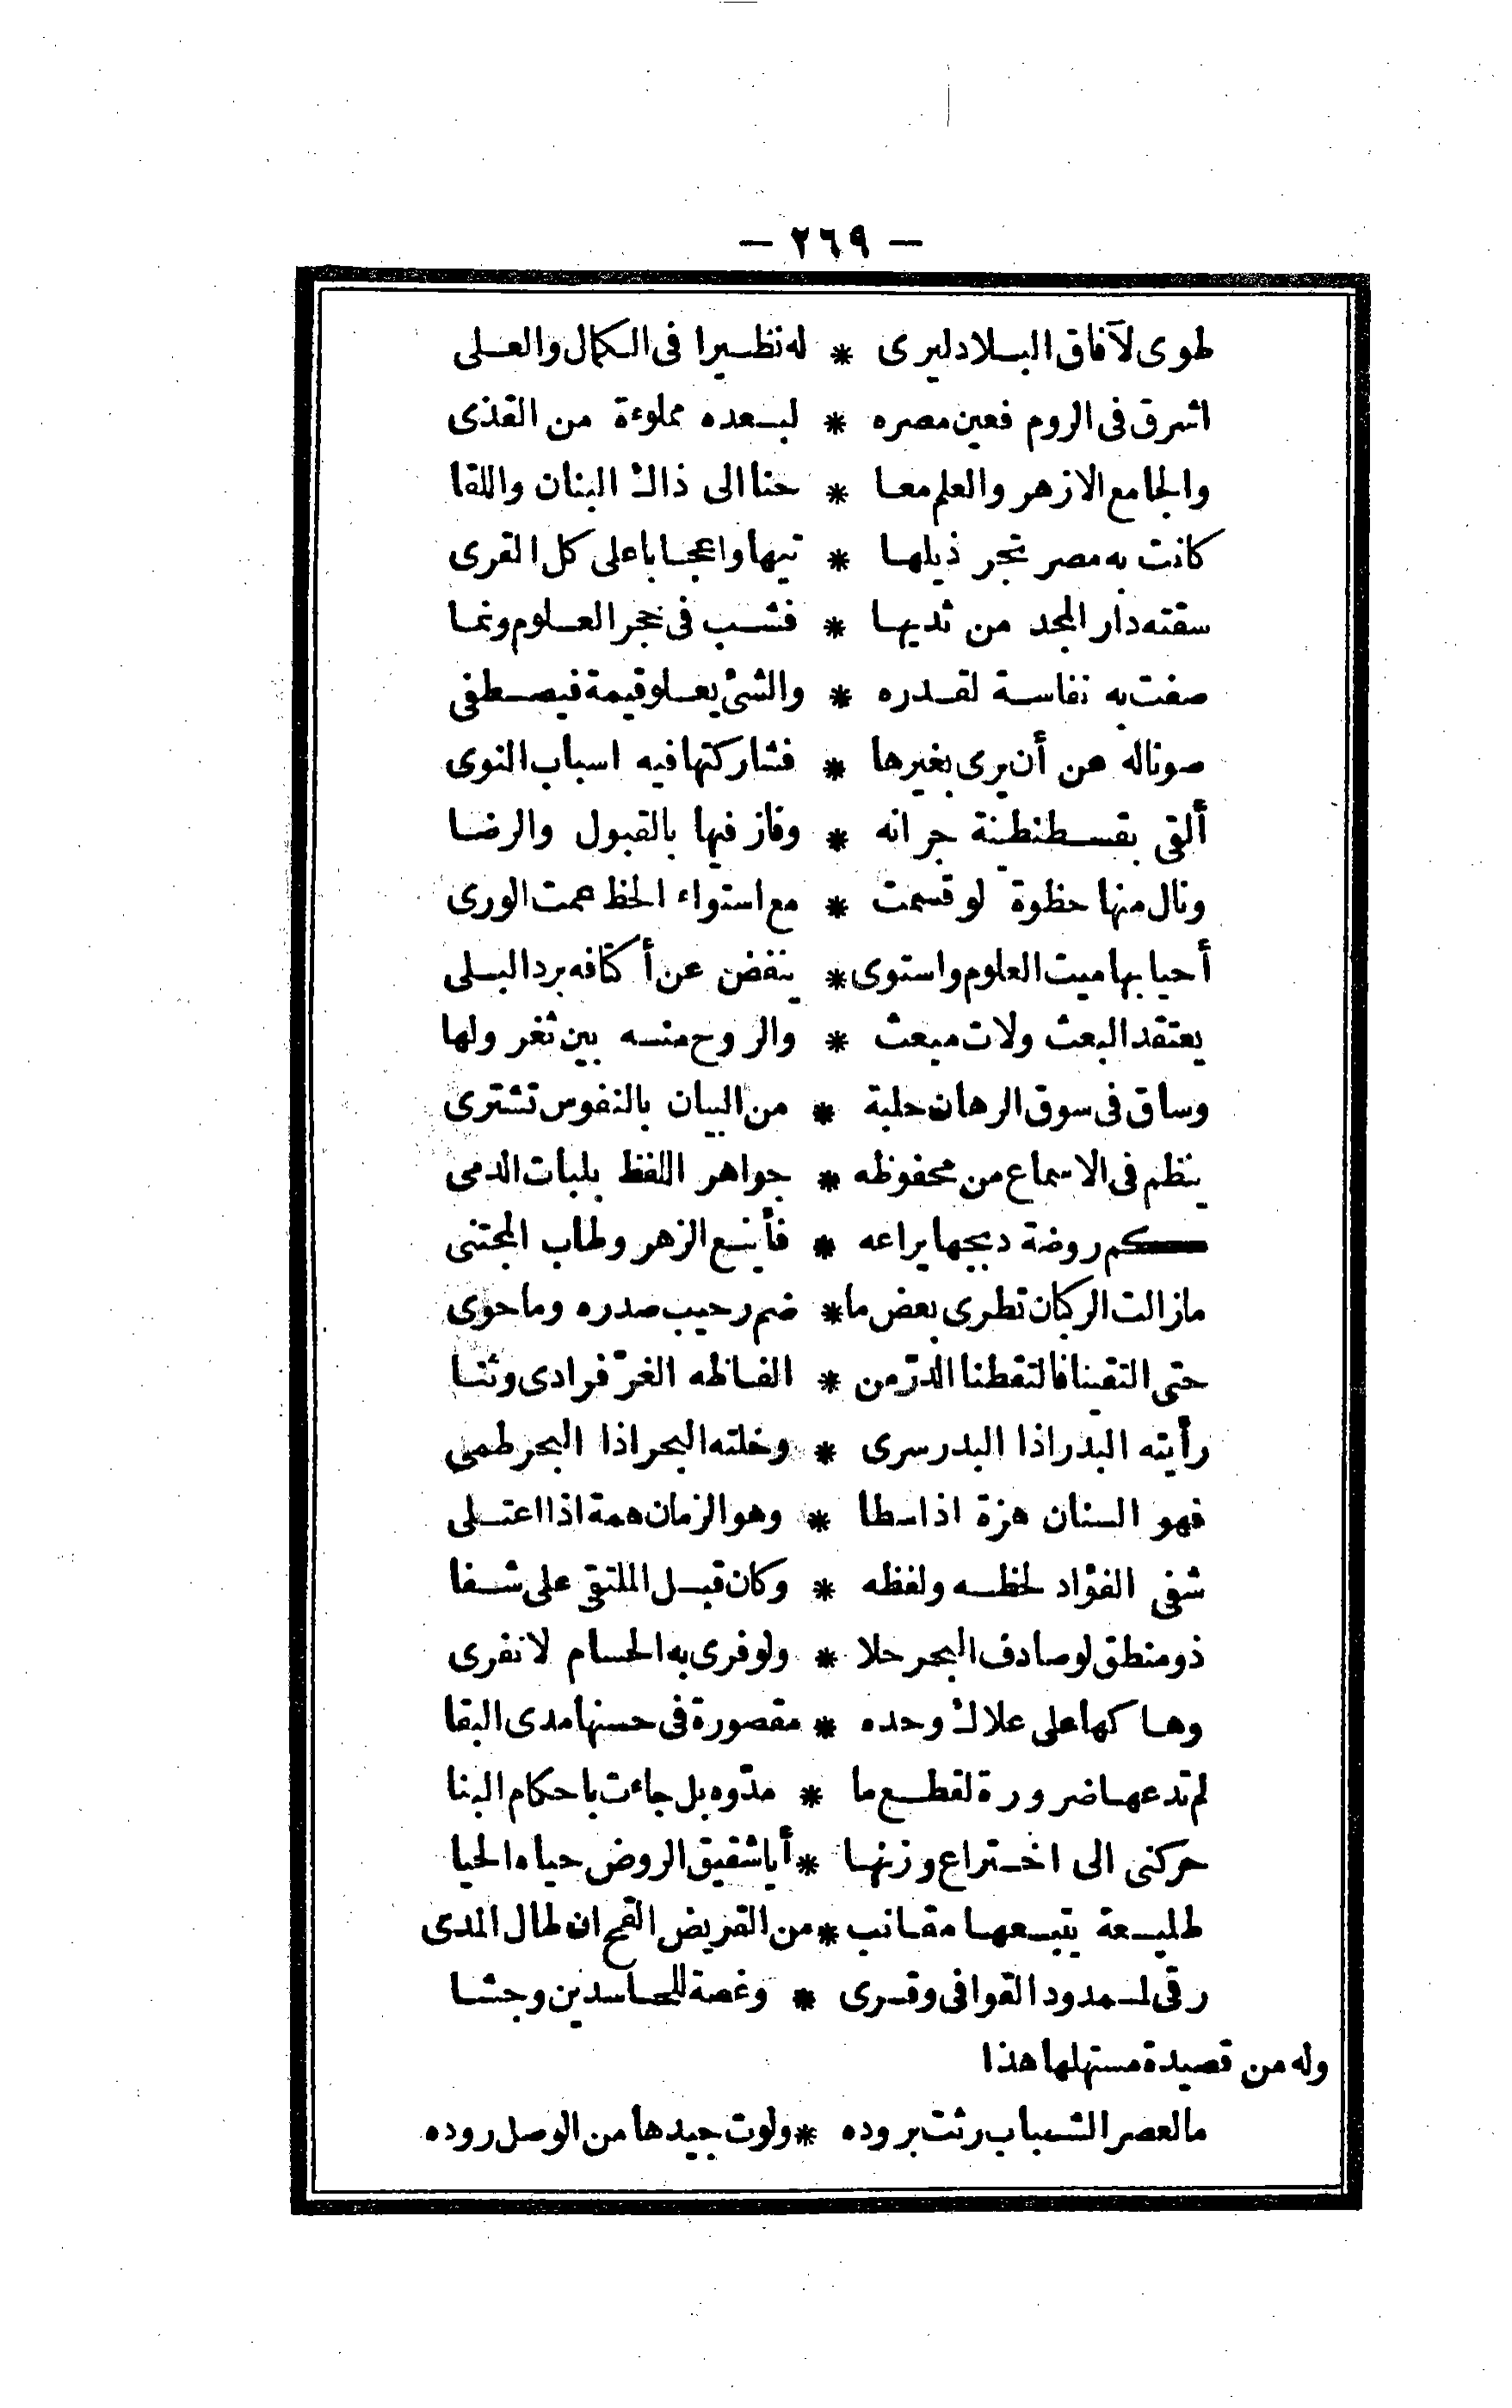 — ٢٦٩ —
طوى لآفاق البلاد ليرى * له نظيرا فى الكمال والعلى
اشرق فى الروم فعين مصره * لبعده مملوءة من القذى
والجامع الازهر والعلم معا * حنا الى ذاك البنان واللقا
كانت به مصر تجر ذيلها * تيها واعجابا على كل القرى
سقته دار المجد من ثديها * فشب فى حجر العلوم ونما
صفت به نفاسة لقدره * والشئ يعلو قيمة فيصطفى
صونا له عن أن يرى بغيرها * فشاركتها فيه اسباب النوى
ألقى بقسطنطنية جرانه * وفاز فيها بالقبول والرضا
ونال منها حظوة لو قسمت * مع استواء الحظ عمت الورى
أحيا بها ميت العلوم واستوى * ينفض عن أكتافه برد البلى
يعتقد البعث ولات مبعث * والروح منه بين ثغر ولها
وساق فى سوق الرهان حلبة * من البيان بالنفوس تشترى
ينظم فى الاسماع من محفوظه * جواهر اللفظ بلبات الدمى
كم روضة دبجها يراعه * فأينع الزهر وطاب المجتنى
مازالت الركبان تطرى بعض ما * ضم رحيب صدره وما حوى
حتى التقينا فالتقطنا الدرّ من * الفاظه الغرّ فرادى وثنا
رأيته البدر اذا البدر سرى * وخلته البحر اذا البحر طمى
فهو السنان هزة اذا سطا * وهو الزمان همة اذا اعتلى
شفى الفؤاد لحظه ولفظه * وكان قبل الملتقى على شفا
ذو منطق لو صادف البحر حلا * ولو فرى به الحسام لانفرى
وهاكها على علاك وحده * مقصورة فى حسنها مدى البقا
لم تدعها ضرورة لقطع ما * مدّوه بل جاءت باحكام البنا
حركنى الى اختراع وزنها * أيا شقيق الروض حياه الحيا
طليعة يتبعها مقانب * من القريض القح ان طال المدى
رقى لممدود القوافى وقرى * وغصة للحاسدين وجشا
وله من قصيدة مستهلها هذا
مالعصر الشباب رثت بروده * ولوت جيدها من الوصل روده